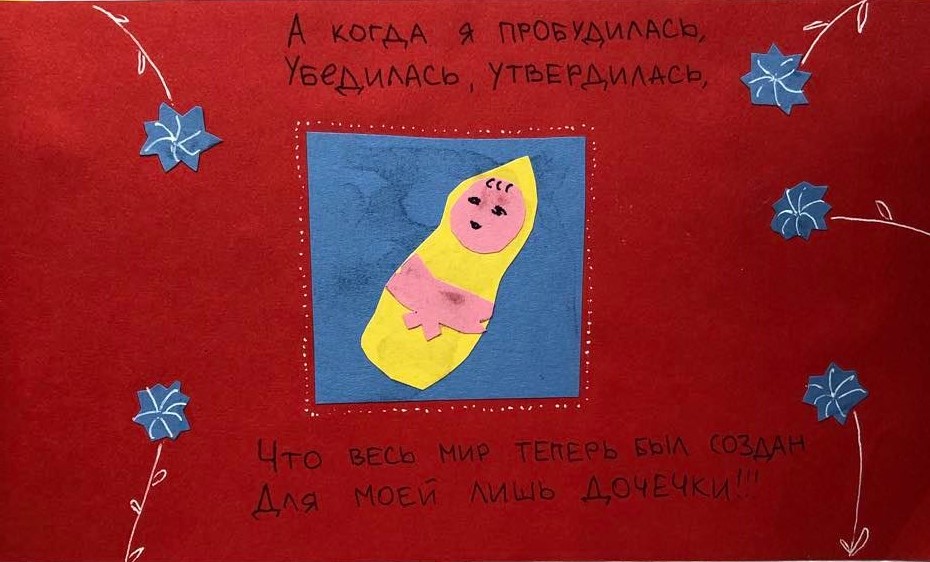 А когда я пробудилась,
Убедилась, утвердилась,
Что весь мир теперь был создан
Для моей лишь дочечки!!!